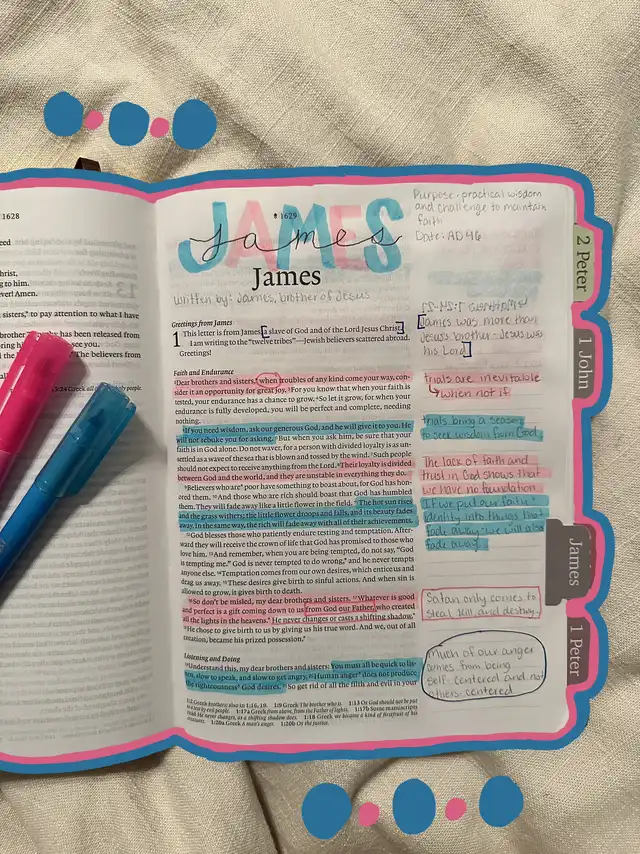 1628
eed
hrist,
g to him.
ever! Amen.
sisters," to pay attention to
brother
has been released from
see you.
The believers from
13:24 Greek all
holy people.
* 1629
JAMES
James
James
written by: James, brother of Jesus
Greetings from James
1 This letter is from James, a slave of God and of the Lord Jesus Christ.
I am writing to the "twelve tribes"—Jewish believers scattered abroad.
Greetings!
Faith and Endurance
2Dear brothers and sisters,* when troubles of any kind come your way, con-
sider it an opportunity for great joy. 3For you know that when your faith is
tested, your endurance has a chance to grow. 4So let it grow, for when your
endurance is fully developed, you will be perfect and complete, needing
nothing.
5If you need wisdom, ask our generous God, and he will give it to you. He
will not rebuke you for asking. 6But when you ask him, be sure that your
faith is in God alone. Do not waver, for a person with divided loyalty is as un-
settled as a wave of the sea that is blown and tossed by the wind. 7Such people
should not expect to receive anything from the Lord. 8Their loyalty is divided
between God and the world, and they are unstable in everything they do.
9Believers who are* poor have something to boast about, for God has hon-
ored them. 10And those who are rich should boast that God has humbled
them. They will fade away like a little flower in the field. 11The hot sun rises
and the grass withers; the little flower droops and falls, and its beauty fades
away. In the same way, the rich will fade away with all of their achievements.
12God blesses those who patiently endure testing and temptation. After-
ward they will receive the crown of life that God has promised to those who
love him. 13And remember, when you are being tempted, do not say, "God
is tempting me." God is never tempted to do wrong,* and he never tempts
anyone else. 14Temptation comes from our own desires, which entice us and
drag us away. 15These desires give birth to sinful actions. And when sin is
allowed to grow, it gives birth to death.
16So don't be misled, my dear brothers and sisters. 17Whatever is good
and perfect is a gift coming down to us from God our Father, who created
all the lights in the heavens.* He never changes or casts a shifting shadow.*
18He chose to give birth to us by giving us his true word. And we, out of all
creation, became his prized possession.*
Listening and Doing
19Understand this, my dear brothers and sisters: You must all be quick to lis-
ten, slow to speak, and slow to get angry. 20Human anger* does not produce
the righteousness* God desires. 21So get rid of all the filth and evil in your
1:2 Greek brothers; also in 1:16, 19. 1:9 Greek The brother who is. 1:13 Or God should not be put
to a test by evil people. 1:17a Greek from above, from the Father of lights. 1:17b Some manuscripts
read He never changes, as a shifting shadow does. 1:18 Greek we became a kind of firstfruit of his
creatures. 1:20a Greek A man's anger. 1:20b Or the justice.
Purpose: practical wisdom
and challenge to maintain
faith
Date: AD 46
James was more than
Jesus's brother - Jesus was
his Lord
trials are inevitable
↳ when not if
Trials bring a season
to seek wisdom from God
The lack of faith and
trust in God shows that
we have no foundation
If we put our faith +
identity into things that
fade away - we will also
fade away
Satan only comes to
steal, kill and destroy.
Much of our anger
comes from being
self-centered and not
others-centered
2 Peter
1 John
James
1 Peter